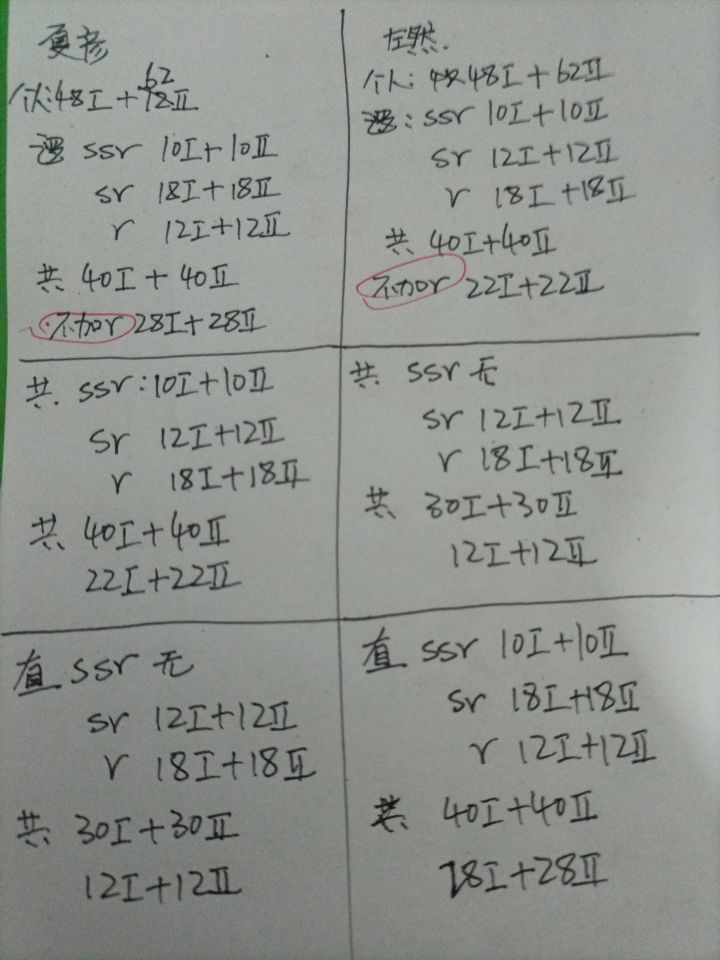 夏彦
个人:48Ⅰ+62Ⅱ
逻 ssr 10Ⅰ+10Ⅱ
sr 18Ⅰ+18Ⅱ
r 12Ⅰ+12Ⅱ
共 40Ⅰ+40Ⅱ
不加r 28Ⅰ+28Ⅱ
共 ssr:10Ⅰ+10Ⅱ
sr 12Ⅰ+12Ⅱ
r 18Ⅰ+18Ⅱ
共 40Ⅰ+40Ⅱ
22Ⅰ+22Ⅱ
直 ssr 无
sr 12Ⅰ+12Ⅱ
r 18Ⅰ+18Ⅱ
共 30Ⅰ+30Ⅱ
12Ⅰ+12Ⅱ
左然.
个人: 48Ⅰ+62Ⅱ
逻: ssr 10Ⅰ+10Ⅱ
sr 12Ⅰ+12Ⅱ
r 18Ⅰ+18Ⅱ
共 40Ⅰ+40Ⅱ
不加r 22Ⅰ+22Ⅱ
共 ssr 无
sr 12Ⅰ+12Ⅱ
r 18Ⅰ+18Ⅱ
共 30Ⅰ+30Ⅱ
12Ⅰ+12Ⅱ
直 ssr 10Ⅰ+10Ⅱ
sr 18Ⅰ+18Ⅱ
r 12Ⅰ+12Ⅱ
共 40Ⅰ+40Ⅱ
28Ⅰ+28Ⅱ